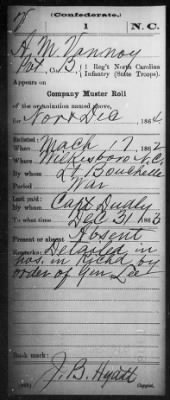 (Confederate.)
V 1 N.C.
H. M. Vannoy
Pvt, Co. B, 1 Reg't North Carolina
Infantry (State Troops).
Appears on
Company Muster Roll
of the organization named above,
for Nov & Dec, 1864
Enlisted:
When Mach 17, 1862
Where Wilkesboro N.C.
By whom Lt Bouchelle
Period War
Last paid:
By whom Capt Dudly
To what time Dec 31, 1863
Present or absent Absent
Remarks: Detailed in
hos. in Richd by
order of Gen Lee
Book mark:
J. B. Hyatt
Copyist.